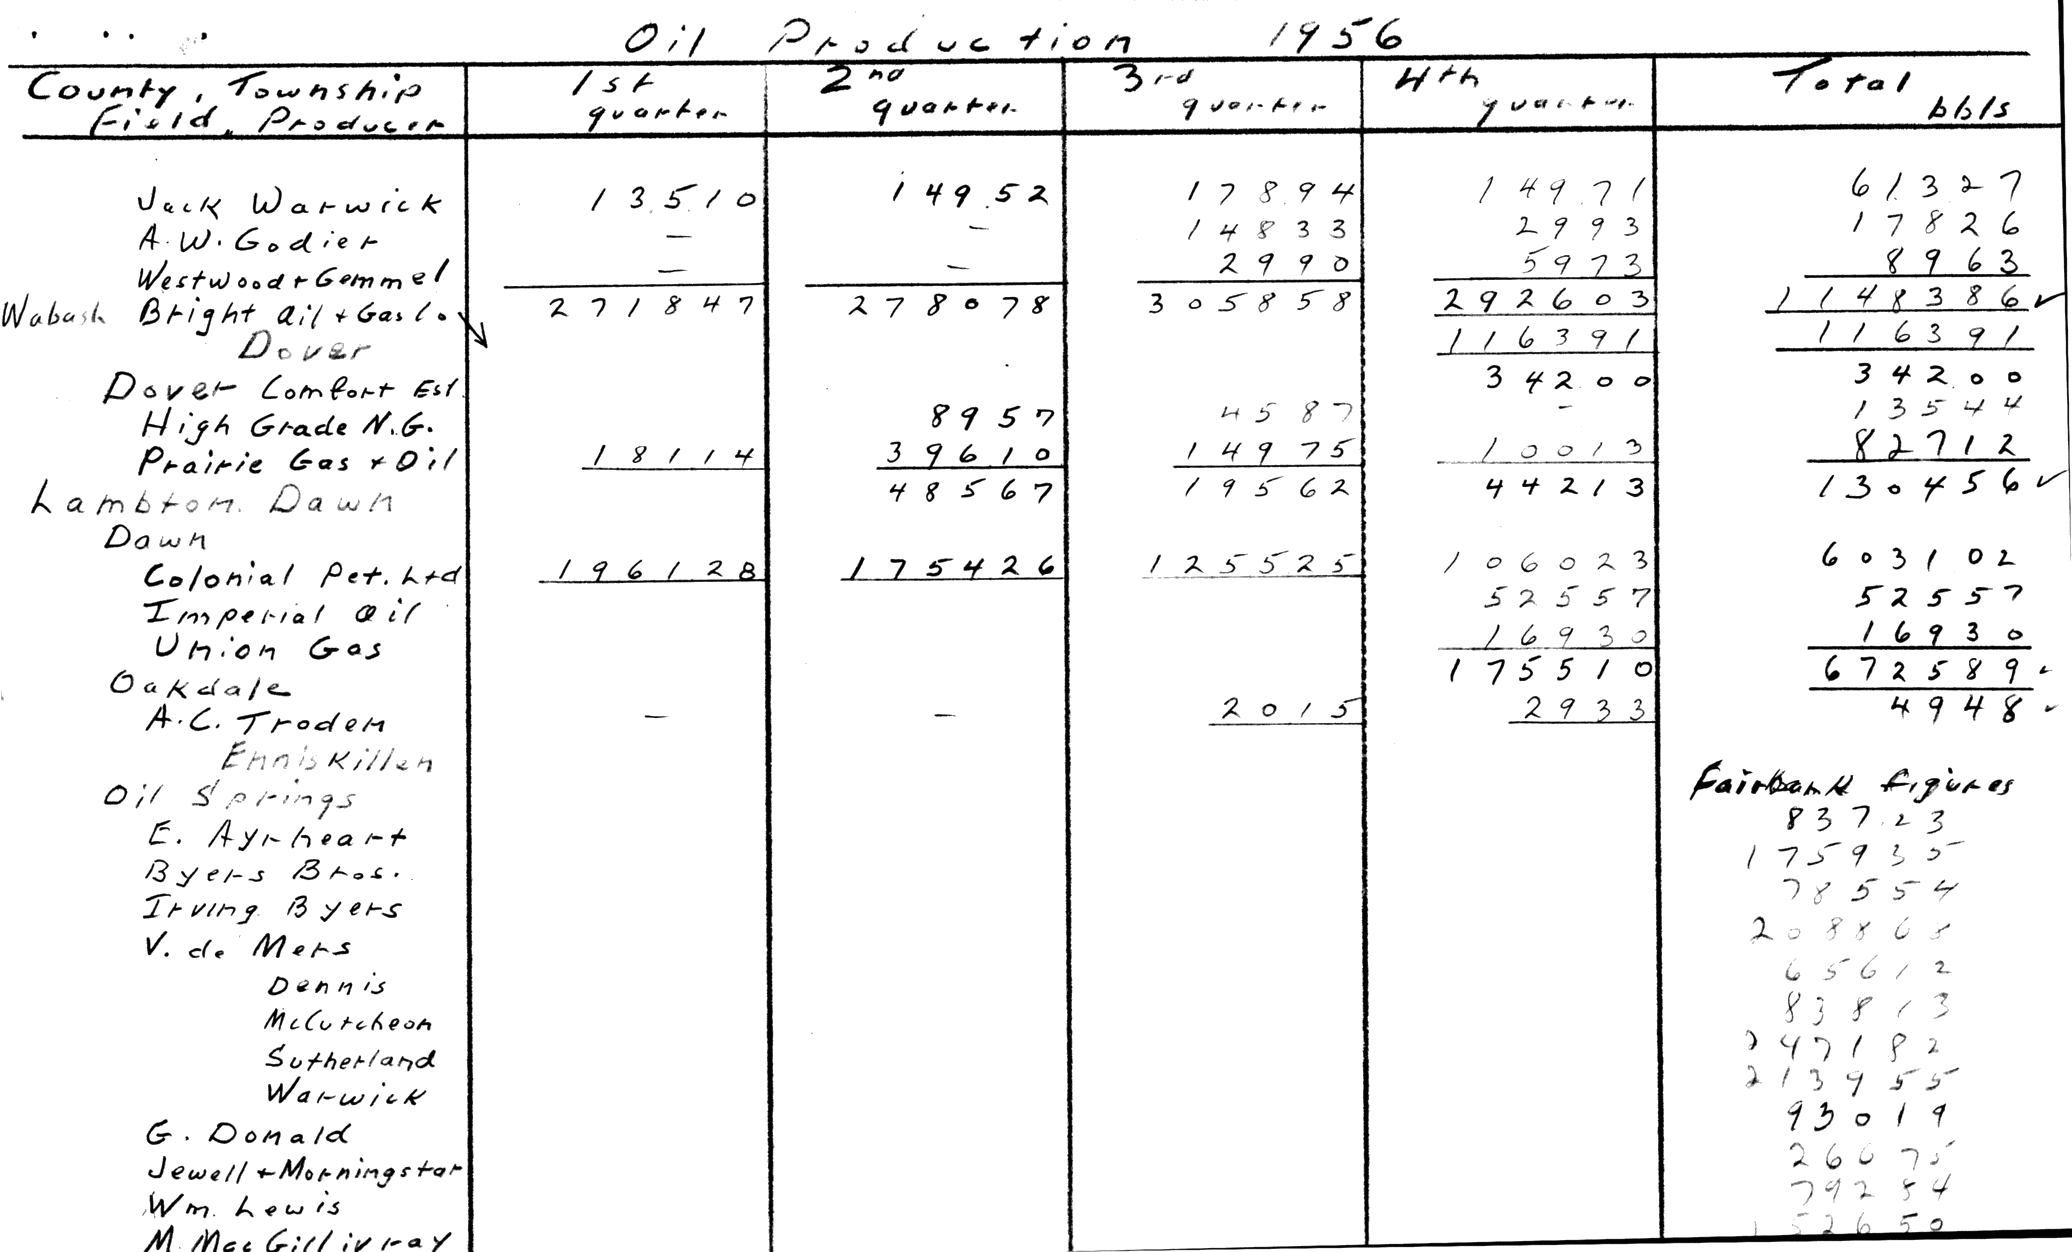 Oil Production 1956
County, Township Field, Producer 1st quarter 2nd quarter 3rd quarter 4th quarter Total bbls
Jack Warwick 13510 14952 17894 14971 61327
A.W. Godier — — 14833 2993 17826
Westwood + Gemmel — — 2990 5973 8963
Wabash Bright Oil + Gas Co. 271847 278078 305858 292603 1148386 ✓
Dover 116391 116391
Dover Comfort Est. 34200 34200
High Grade N.G. 8957 4587 - 13544
Prairie Gas + Oil 18114 39610 14975 10013 82712
48567 19562 44213 130456 ✓
Lambton Dawn
Dawn
Colonial Pet. Ltd 196128 175426 125525 106023 603102
Imperial Oil 52557 52557
Union Gas 16930 16930
175510 672589 ✓
Oakdale
A.C. Troden — — 2015 2933 4948 ✓
Enniskillen
Oil Springs Fairbank figures
E. Ayrheart 83723
Byers Bros. 175935
Irving Byers 78554
V. de Mers 208868
Dennis 65612
McCutcheon 83813
Sutherland 247182
Warwick 213955
G. Donald 93019
Jewell + Morningstar 26675
Wm. Lewis 79284
M. MacGillivray 152650